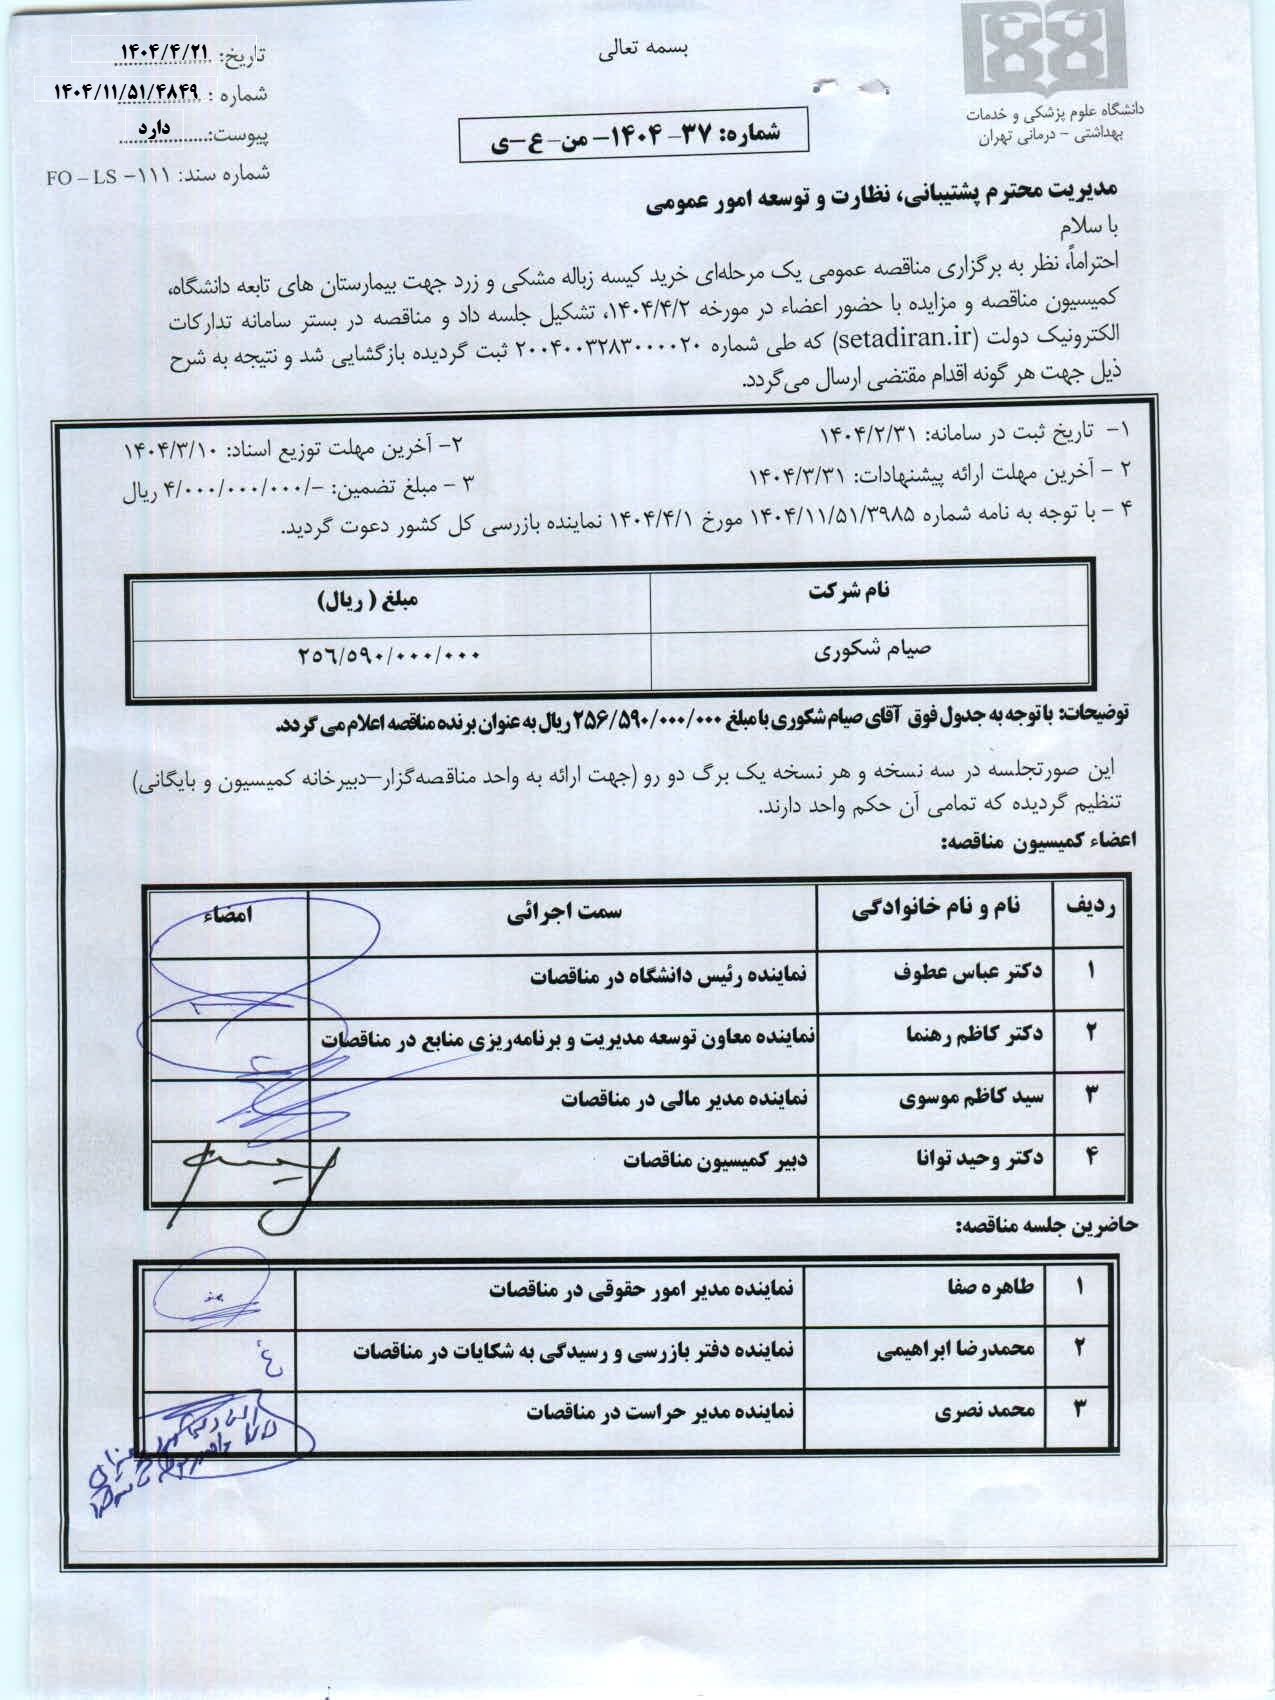 بسمه تعالی
تاریخ: ۱۴۰۴/۴/۲۱
شماره : ۱۴۰۴/۱۱/۵۱/۴۸۴۹
پیوست: دارد
شماره سند: FO – LS –۱۱۱
دانشگاه علوم پزشکی و خدمات
بهداشتی – درمانی تهران
شماره: ۳۷- ۱۴۰۴– من– ع–ی
مدیریت محترم پشتیبانی، نظارت و توسعه امور عمومی
با سلام
احتراماً، نظر به برگزاری مناقصه عمومی یک مرحله‌ای خرید کیسه زباله مشکی و زرد جهت بیمارستان های تابعه دانشگاه،
کمیسیون مناقصه و مزایده با حضور اعضاء در مورخه ۱۴۰۴/۴/۲، تشکیل جلسه داد و مناقصه در بستر سامانه تدارکات
الکترونیک دولت (setadiran.ir) که طی شماره ۲۰۰۴۰۰۳۲۸۳۰۰۰۰۲۰ ثبت گردیده بازگشایی شد و نتیجه به شرح
ذیل جهت هر گونه اقدام مقتضی ارسال می‌گردد.
۱- تاریخ ثبت در سامانه: ۱۴۰۴/۲/۳۱
۲- آخرین مهلت توزیع اسناد: ۱۴۰۴/۳/۱۰
۲ – آخرین مهلت ارائه پیشنهادات: ۱۴۰۴/۳/۳۱
۳ – مبلغ تضمین: -/۴/۰۰۰/۰۰۰/۰۰۰ ریال
۴ – با توجه به نامه شماره ۱۴۰۴/۱۱/۵۱/۳۹۸۵ مورخ ۱۴۰۴/۴/۱ نماینده بازرسی کل کشور دعوت گردید.
نام شرکت مبلغ ( ریال)
صیام شکوری ۲۵۶/۵۹۰/۰۰۰/۰۰۰
توضیحات: با توجه به جدول فوق آقای صیام شکوری با مبلغ ۲۵۶/۵۹۰/۰۰۰/۰۰۰ ریال به عنوان برنده مناقصه اعلام می گردد.
این صورتجلسه در سه نسخه و هر نسخه یک برگ دو رو (جهت ارائه به واحد مناقصه‌گزار–دبیرخانه کمیسیون و بایگانی)
تنظیم گردیده که تمامی آن حکم واحد دارند.
اعضاء کمیسیون مناقصه:
ردیف نام و نام خانوادگی سمت اجرائی امضاء
۱ دکتر عباس عطوف نماینده رئیس دانشگاه در مناقصات
۲ دکتر کاظم رهنما نماینده معاون توسعه مدیریت و برنامه‌ریزی منابع در مناقصات
۳ سید کاظم موسوی نماینده مدیر مالی در مناقصات
۴ دکتر وحید توانا دبیر کمیسیون مناقصات
حاضرین جلسه مناقصه:
۱ طاهره صفا نماینده مدیر امور حقوقی در مناقصات
۲ محمدرضا ابراهیمی نماینده دفتر بازرسی و رسیدگی به شکایات در مناقصات
۳ محمد نصری نماینده مدیر حراست در مناقصات